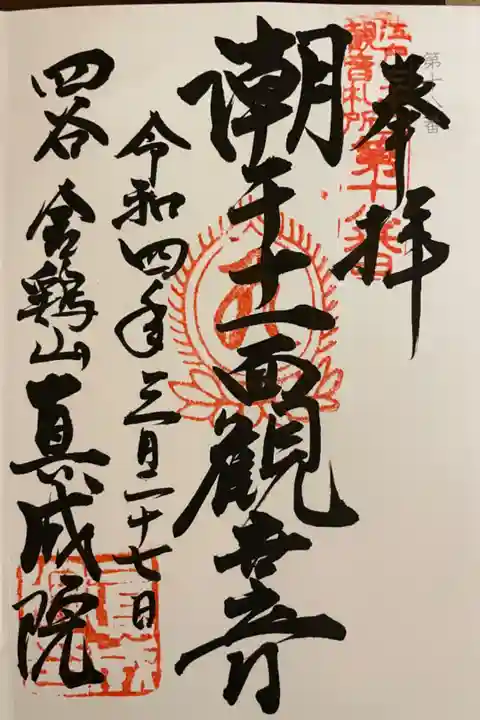 第十八番
江戸三十三観音札所第十八番
奉拝
潮干十一面観世音
令和四年三月二十七日
四谷 金鶏山 真成院